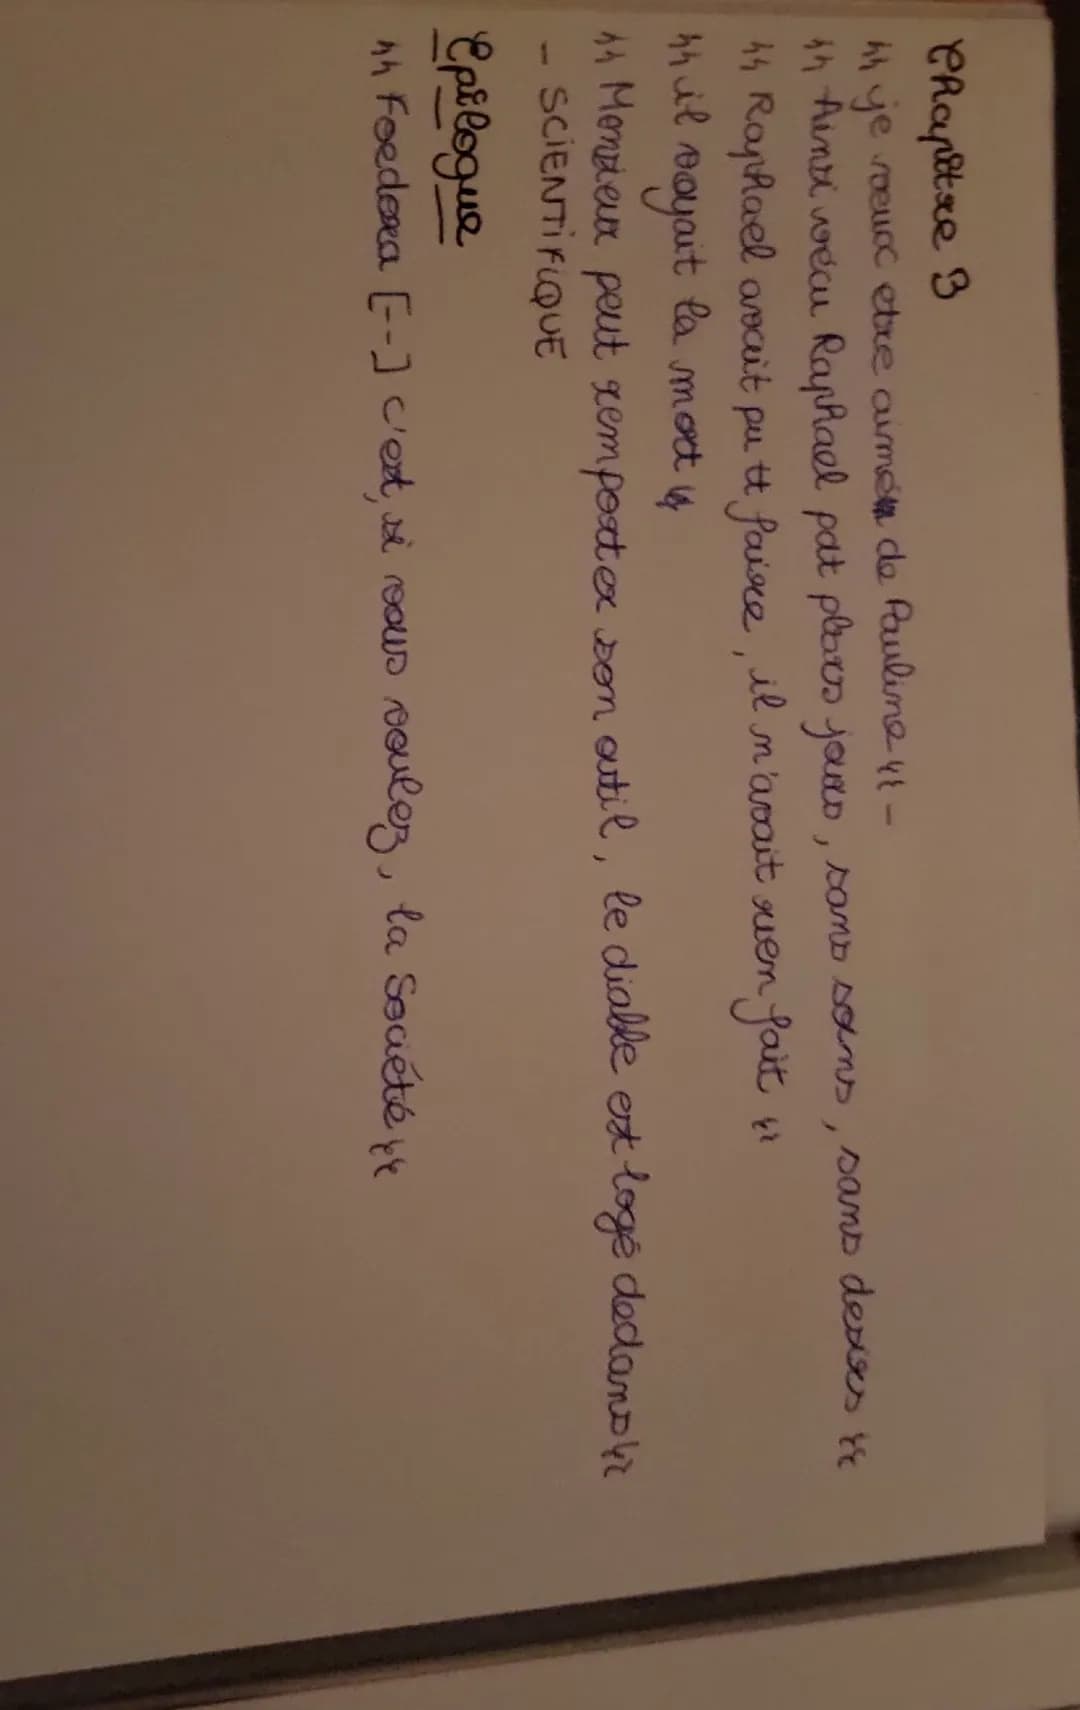 Chapitre 3
"je veux etre aimé de Pauline" -
"Ainsi vécu Raphael pdt plsrs jours, sans soins, sans desirs"
"Raphael avait pu tt faire, il n'avait rien fait"
"il voyait la mort"
"Monsieur peut remporter son outil, le diable est logé dedans"
- SCIENTIFIQUE
Epilogue
"Foedora [--] c'est, si vous voulez, la Société"